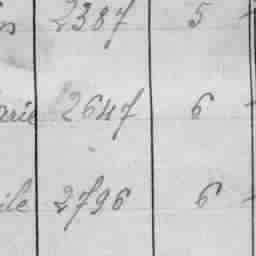 2387 5
arie 2647 6
ile 2796 6